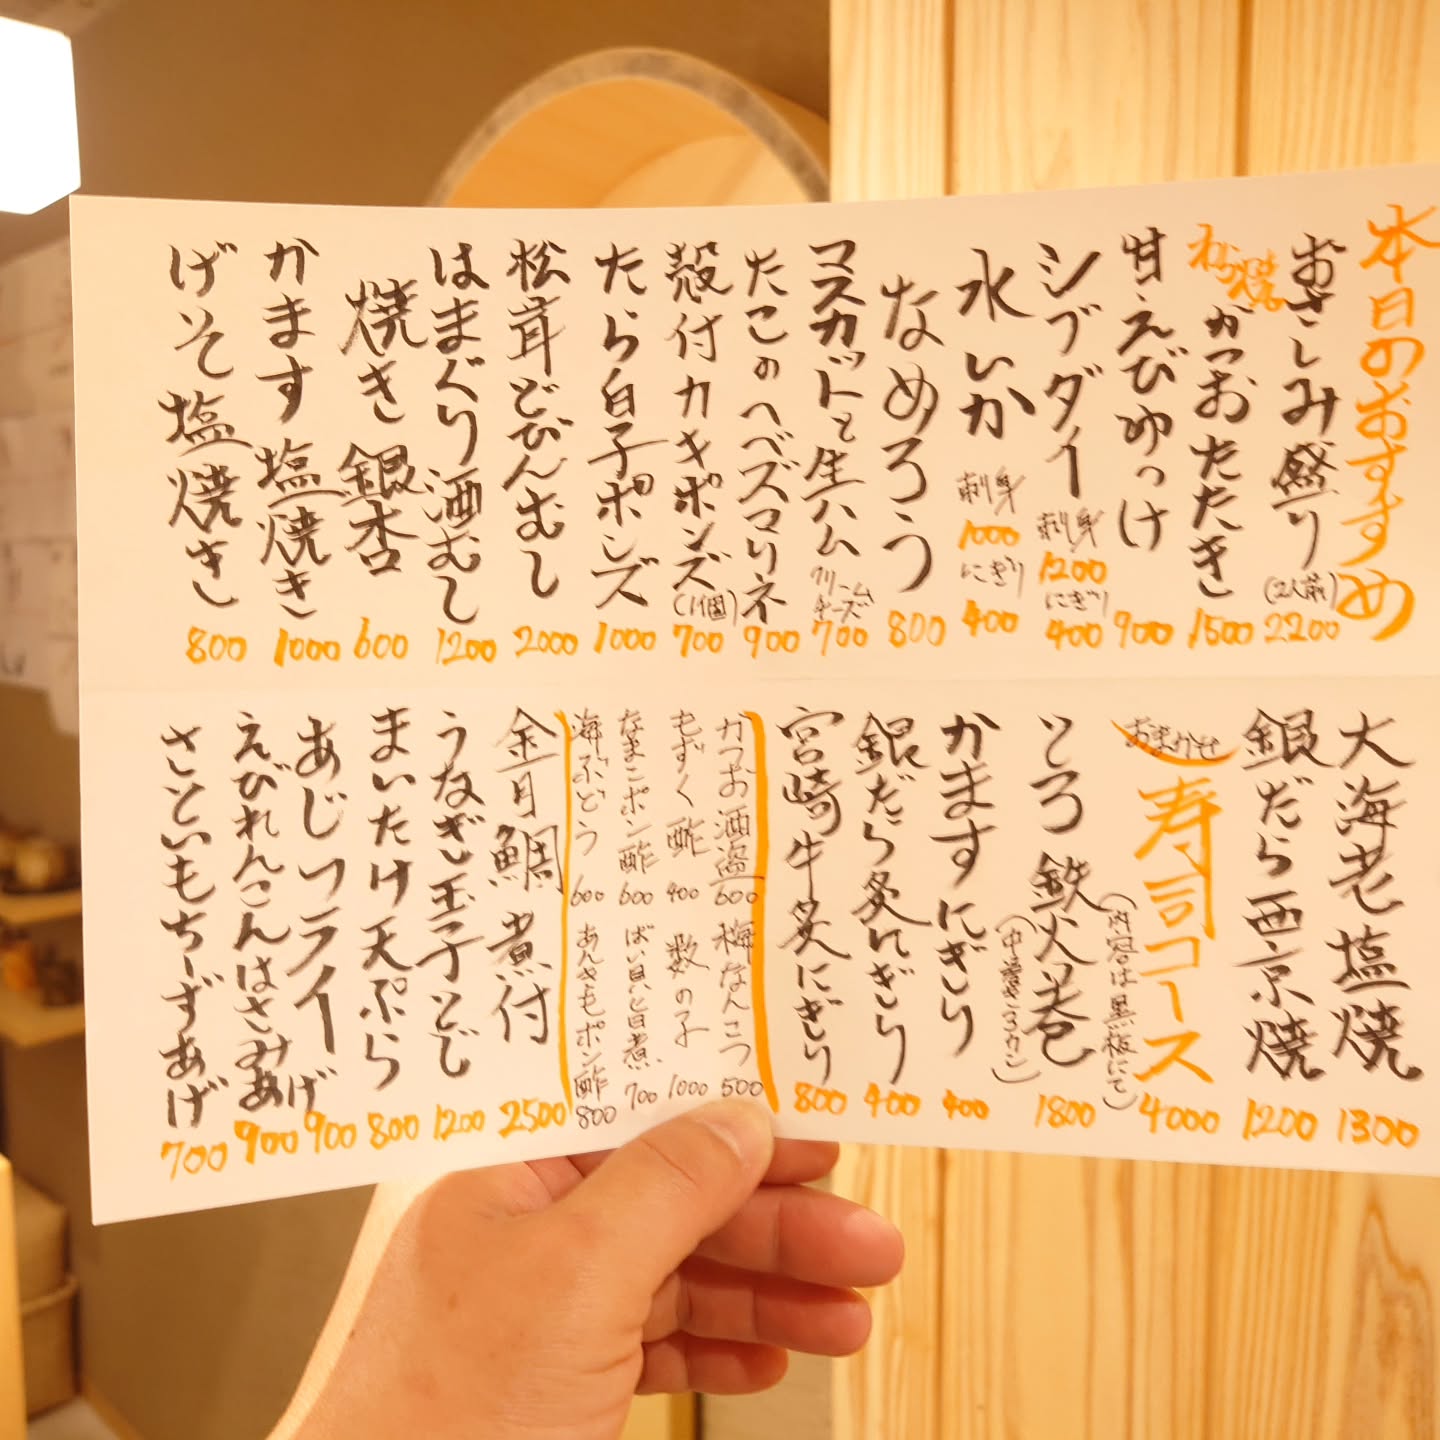 本日のおすすめ
おさしみ盛り(2人前) 2200
わら焼 かつおたたき 1500
甘えびゆっけ 900
シブダイ 刺身 1200 にぎり 400
水いか 刺身 1000 にぎり 400
なめろう 800
マスカットと生ハム クリームチーズ 700
たこのヘベズマリネ 900
殻付カキポンズ(1個) 700
たら白子ポンズ 1000
松茸どびんむし 2000
はまぐり酒むし 1200
焼き銀杏 600
かます塩焼き 1000
げそ塩焼き 800
大海老塩焼 1300
銀だら西京焼 1200
おまかせ 寿司コース (内容は黒板にて) 4000
とろ鉄火巻 1800
かますにぎり 400
銀だら炙にぎり 400
宮崎牛炙にぎり 800
かつお酒盗 600 梅なんこつ 500
もずく酢 400 数の子 1000
なまこポン酢 600 ばい貝と旨煮 700
海ぶどう 600 あんきもポン酢 800
金目鯛煮付 2500
うなぎ玉子とじ 1200
まいたけ天ぷら 800
あじフライ 900
えびれんこんはさみあげ 900
さといももちーずあげ 700